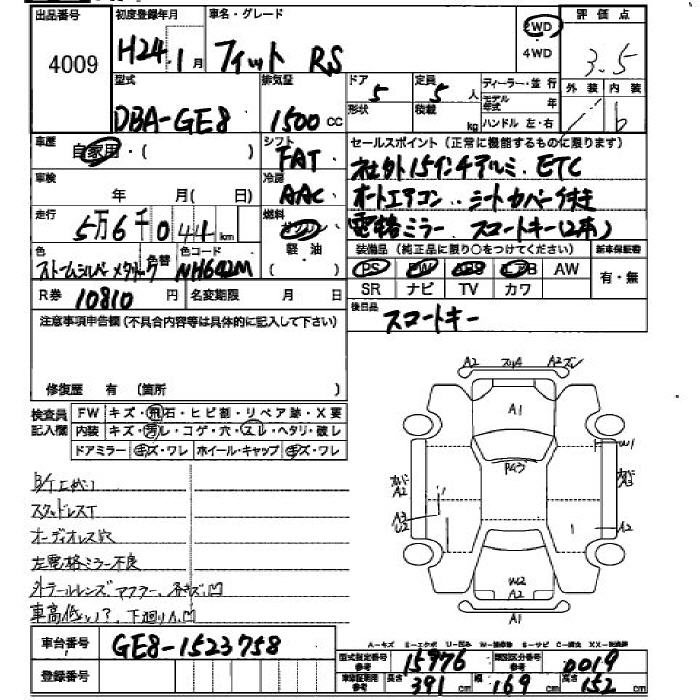 出品番号 4009
初度登録年月 H24年 1月
車名・グレード フィット RS
2WD
4WD
評価点 3.5
外装 内装 b
型式 DBA-GE8
排気量 1500 cc
ドア 5
形状
定員 5人
積載 kg
ディーラー・並行
モデル年式 年
ハンドル 左・右
車歴 自家用・( )
シフト FAT
セールスポイント(正常に機能するものに限ります)
社外15インチアルミ. ETC
車検 年 月( 日)
冷房 AAC
オートエアコン. シートカバー
走行 5万6千044km
燃料 ガソリン 軽油
電格ミラー. スマートキー(2本)
色 ストームシルバーメタリック
色替
色コード NH642M
装備品(純正品に限り○をつけてください)
新車保証書
PS PW ABS エアB AW
SR ナビ TV カワ
有・無
R券 10810円
名変期限 月 日
後日品 スマートキー
注意事項申告欄(不具合内容等は具体的に記入して下さい)
修復歴 有(箇所 )
検査員記入欄
FW キズ・飛石・ヒビ割・リペア跡・X要
内装 キズ・汚レ・コゲ・穴・スレ・ヘタリ・破レ
ドアミラー キズ・ワレ ホイール・キャップ キズ・ワレ
スタッドレスT
オーディオレス
左電格ミラー不良
外テールレンズ. マフラー. 各キズ凹
下廻り凹
A2 A2
A1
W1
A2
A3
U2
1
1
A2
W2
A2
A1
車台番号 GE8-1523758
登録番号
型式指定番号 参考 15976
類別区分番号 参考 0019
車検証記載 参考 長さ 391cm 幅 169cm 高さ 152cm